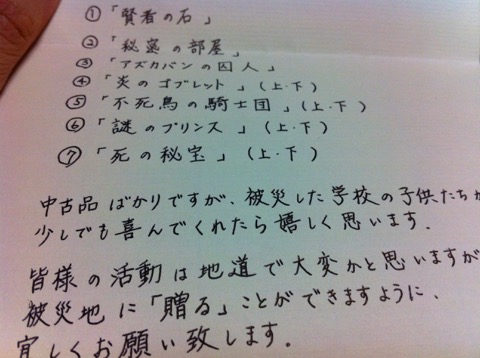 ① 「賢者の石」
② 「秘密の部屋」
③ 「アズカバンの囚人」
④ 「炎のゴブレット」(上・下)
⑤ 「不死鳥の騎士団」(上・下)
⑥ 「謎のプリンス」(上・下)
⑦ 「死の秘宝」(上・下)
中古品ばかりですが、被災した学校の子供たちが
少しでも喜んでくれたら嬉しく思います.
皆様の活動は地道で大変かと思いますが
被災地に「贈る」ことができますように、
宜しくお願い致します.